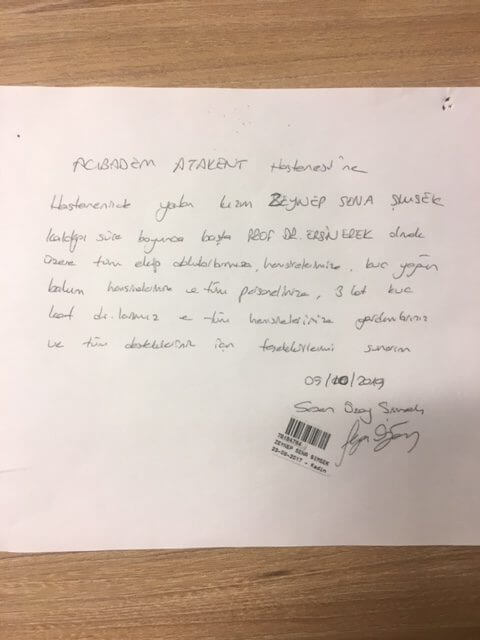 ACIBADEM ATAKENT Hastanesi'ne
Hastanenizde yatan kızım ZEYNEP SENA ŞİMŞEK
kaldığı süre boyunca başta PROF DR. ERSİN EREK olmak
üzere tüm ekip hemşirelerimize, KVC yoğun
bakım hemşirelerine ve tüm personelinize, 3. kat KVC
kat dr.larımız ve tüm hemşirelerinize
ve tüm destekleriniz için teşekkürlerimi sunarım
09/10/2019
Şimşek
78184764
ZEYNEP SENA SIMSEK
23-08-2017 - Kadin